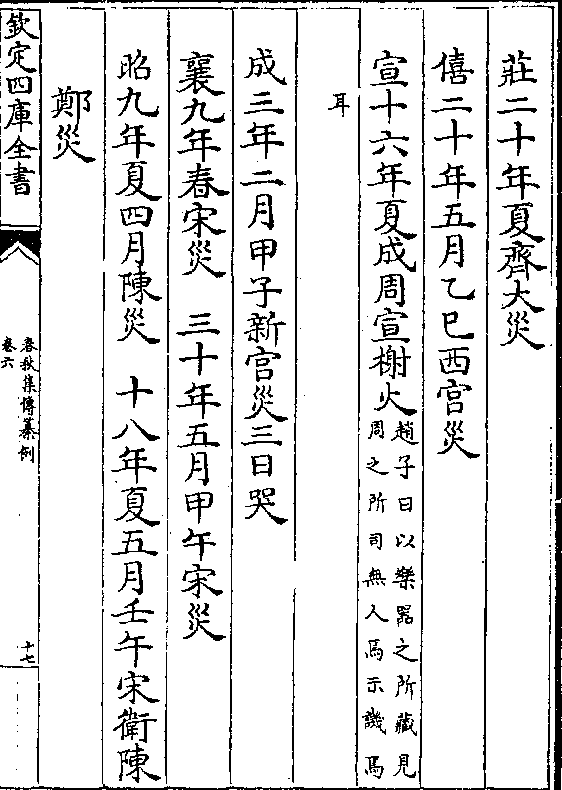 莊二十年夏齊大災
僖二十年五月乙巳西宫災
宣十六年夏成周宣榭火趙子曰以樂器之所藏見周之所司無人焉示譏焉
耳
成三年二月甲子新宫災三日哭
襄九年春宋災　三十年五月甲午宋災
昭九年夏四月陳災　十八年夏五月壬午宋衛陳
鄭災
欽定四庫全書
春秋集傳纂例
卷六
十七